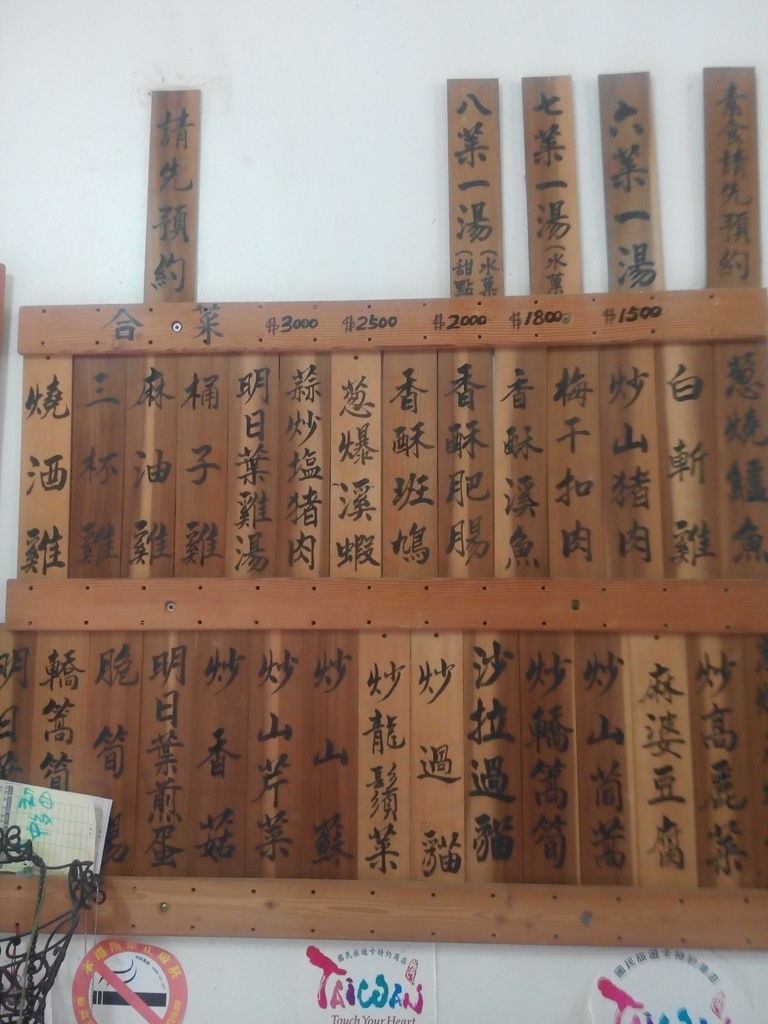 素食請先預約
六菜一湯
七菜一湯(水菓
八菜一湯(水菓
(甜點
請先預約
合菜 $3000 $2500 $2000 $1800 $1500
葱燒鱸魚
白斬雞
炒山猪肉
梅干扣肉
香酥溪魚
香酥肥腸
香酥班鳩
葱爆溪蝦
蒜炒塩猪肉
明日葉雞湯
桶子雞
麻油雞
三杯雞
燒酒雞
炒高麗菜
麻婆豆腐
炒山茼蒿
炒轎篙筍
沙拉過貓
炒過貓
炒龍鬚菜
炒山蘇
炒山芹菜
炒香菇
明日葉煎蛋
脆筍湯
轎篙筍
明日
本場所禁止吸菸
國民旅遊卡特約商店
TAIWAN
Touch Your Heart
國民旅遊卡特約商店